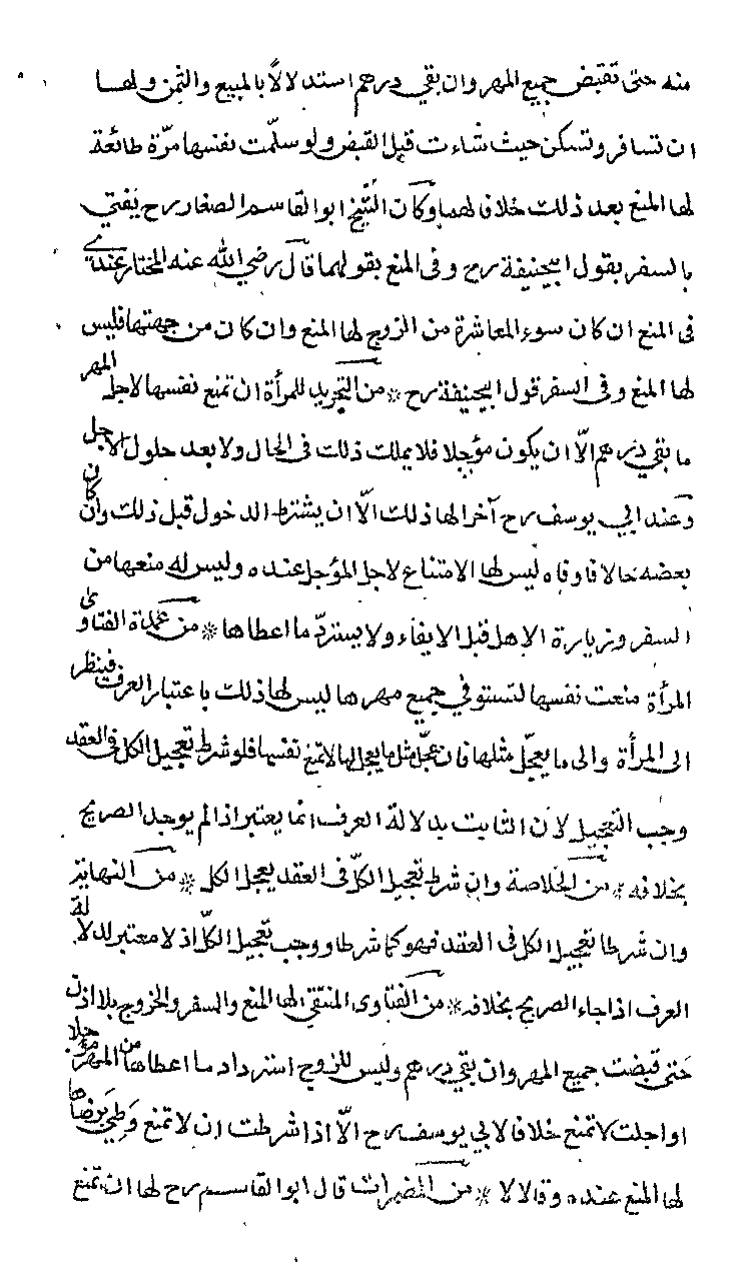 منه حتى تقبض جميع المهر وان بقي درهم استدلالاً بالمبيع والثمن ولها
ان تسافر وتسكن حيث شاءت قبل القبض ولو سلّمت نفسها مرّة طائعة
لها المنع بعد ذلك خلافا لهما وكان الشيخ ابو القاسم الصفار رح يفتي
بالسفر بقول ابيحنيفة رح وفى المنع بقولهما قال رضي الله عنه المختار عندي
فى المنع ان كان سوء المعاشرة من الزوج لها المنع وان كان من جهتها فليس
لها المنع وفى السفر قول ابيحنيفة رح * من التجريد للمرأة ان تمنع نفسها لاجل المهر
ما بقي درهم الّا ان يكون مؤجلا فلا يملك ذلك فى الحال ولا بعد حلول الاجل
وعند ابي يوسف رح آخرا لها ذلك الّا ان يشترط الدخول قبل ذلك وان كان
بعضه حالا فاوفاه ليس لها الامتناع لاجل المؤجل عنده وليس له منعها من
السفر وزيارة الاهل قبل الايفاء ولا يسترد ما اعطاها * من عمدة الفتاوى
المرأة منعت نفسها لتستوفي جميع مهرها ليس لها ذلك باعتبار العرف فينظر
الى المرأة والى ما يعجّل مثلها فان عجّل مثل ما يعجل لها لا تمنع نفسها فلو شرط تعجيل الكل فى العقد
وجب التعجيل لان الثابت بدلالة العرف انما يعتبر اذا لم يوجد الصريح
بخلافه * من الخلاصة وان شرط تعجيل الكلّ فى العقد يعجل الكل * من النهاية
وان شرطا تعجيل الكل فى العقد فهو كما شرطا ووجب تعجيل الكلّ اذ لا معتبر لدلالة
العرف اذا جاء الصريح بخلافه * من الفتاوى المنتقى لها المنع والسفر والخروج بلا اذن
حتى قبضت جميع المهر وان بقي درهم وليس للزوج استرداد ما اعطاها من المهر مؤجلا
او اجلت لا تمنع خلافا لابي يوسف رح الّا اذا شرطت ان لا تمنع وطي برضاها
لها المنع عنده وقالا لا * من المضمرات قال ابو القاسم رح لها ان تمنع